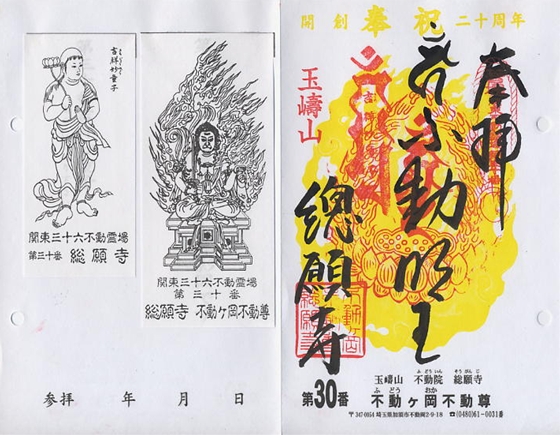 吉祥妙童子
関東三十六不動霊場
第三十番 総願寺
関東三十六不動霊場
第三十番
総願寺 不動ヶ岡不動尊
参拝 年 月 日
開創 奉祝 二十周年
奉拝
不動明王
玉嶹山
總願寺
玉嶹山 不動院 総願寺
第30番 不動ヶ岡不動尊
〒347-0054 埼玉県加須市不動岡2-9-18 ☎(0480)61-0031㈹